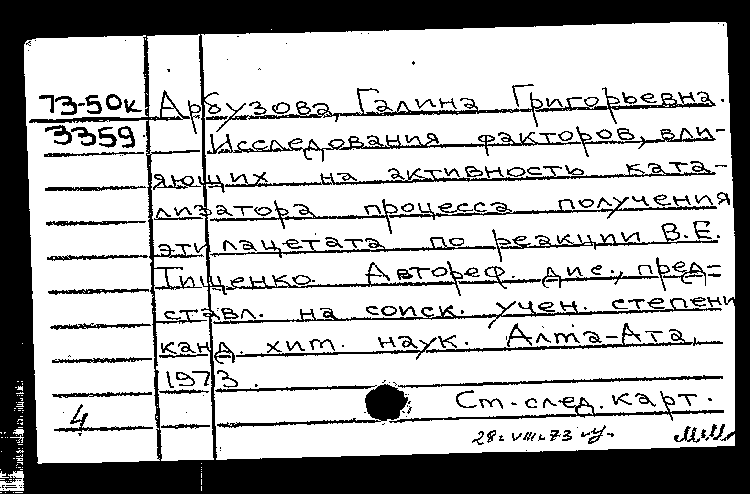 73-50к Арбузова, Галина Григорьевна.
3359 Исследования факторов, вли-
яющих на активность ката-
лизатора процесса получения
этилацетата по реакции В.Е.
Тищенко. Автореф. дис., пред-
ставл. на соиск. учен. степени
канд. хим. наук. Алма-Ата,
1973.
4 См. след. карт.
28.VIII.73